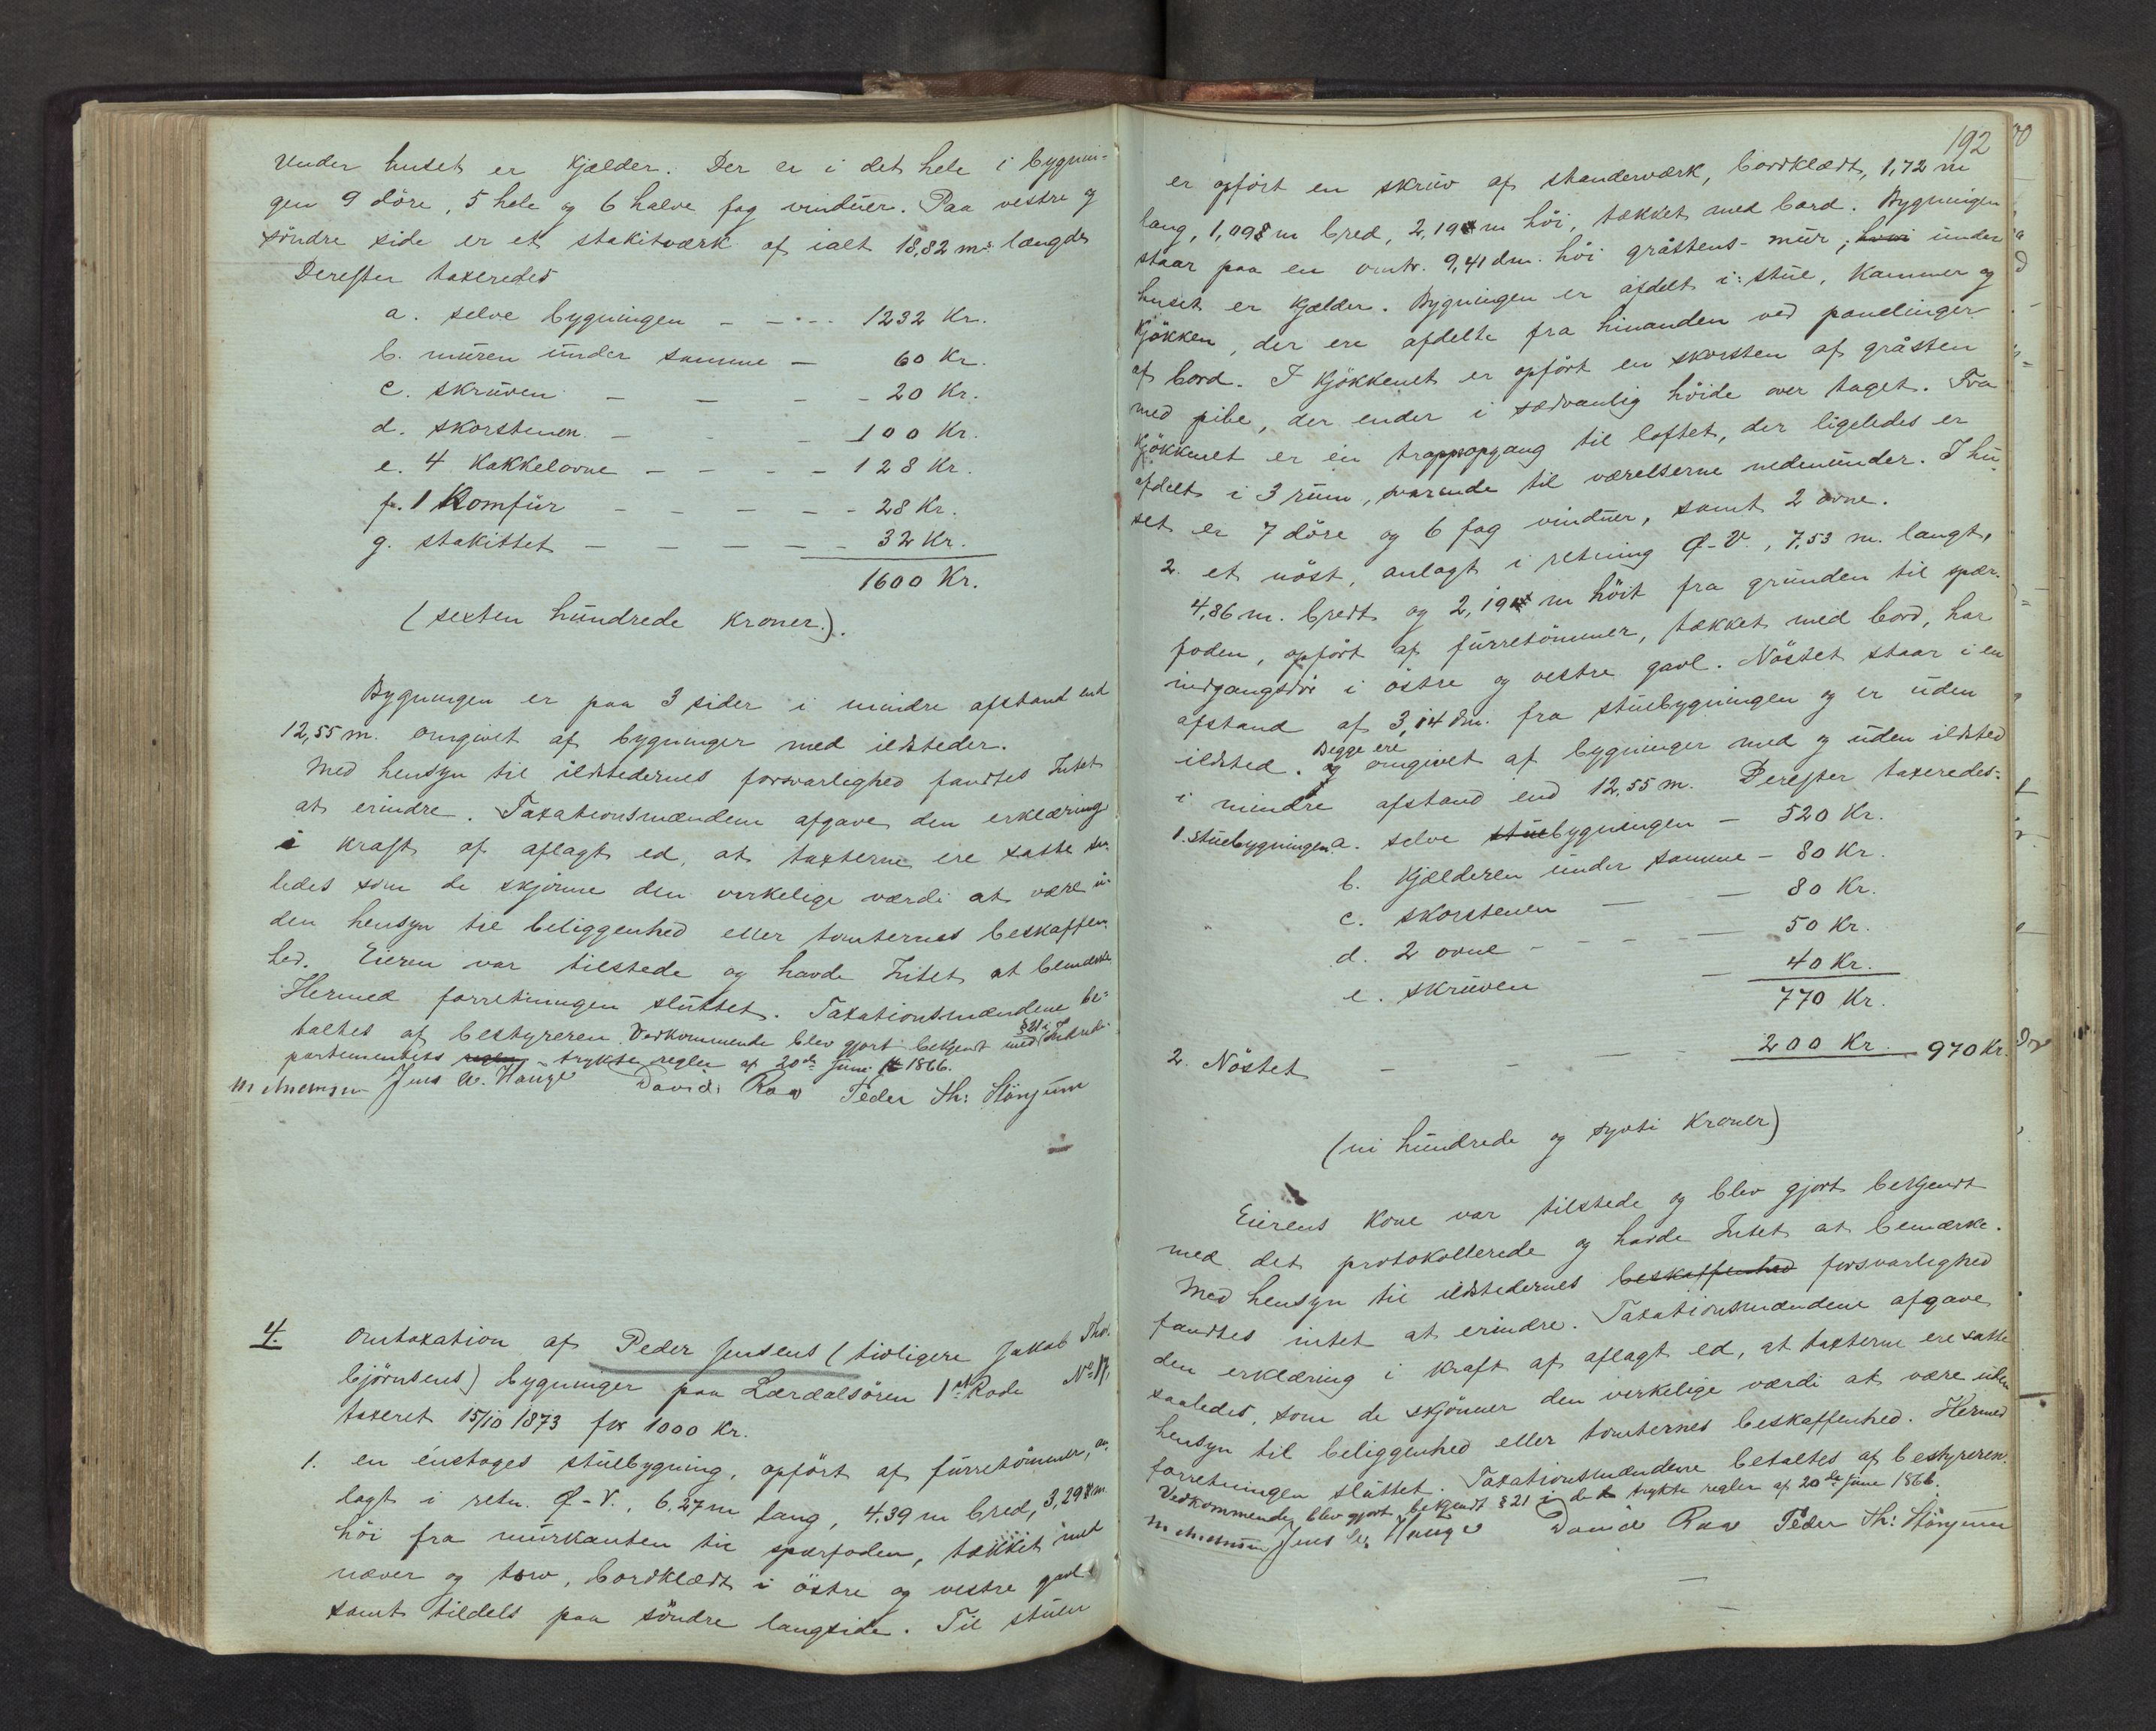 Under huset er Kjælder. Der er i det hele i bygnin-
gen 9 döre, 5 hele og 6 halve fag vinduer. Paa vestre og
söndre side er et stakitværk af ialt 18,82 m's længde
Derefter taxeredes
a. selve bygningen - - - - 1232 Kr.
b. muren under samme - 60 Kr.
c. skruven - - - - 20 Kr.
d. skorstenen - - - 100 Kr.
e. 4 Kakkelovne - - - - 128 Kr.
f. 1 Komfur - - - - - 28 Kr.
g. stakittet - - - - - 32 Kr.
1600 Kr.
(sexten hundrede Kroner.).
Bygningen er paa 3 sider i mindre afstand end
12,55 m. omgivet af bygninger med ildsteder.
Med hensyn til ildstedernes forsvarlighed fandtes Intet
at erindre. Taxationsmændene afgave den erklæring
i Kraft af aflagt ed, at taxterne ere satte saa-
ledes som de skjönne den virkelige værdi at være u-
den hensyn til beliggenhed eller tomternes beskaffen-
hed. Eieren var tilstede og havde Intet at bemærke
Hermed forretningen sluttet. Taxationsmændene be-
taltes af bestyreren. Vedkommende blev gjort bekjendt med § 21 i Inde-
partementets trykte regler af 20de Juni 1866.
Jens A. Hauge David Raa Peder Th: Stönjum
4. Omtaxation af Peder Jensens (tidligere Jakob Thor-
björnsens) bygninger paa Lærdalsören 1ste Rode No 17,
taxeret 15/10 1873 for 1000 Kr.
1. en énetages stuebygning, opfört af furretömmer, an-
lagt i retn. Ø-V., 6,27 m lang, 4,39 m bred, 3,298 m
höi fra murkanten til spærfoden, tækket med
næver og torv, bordklædt i östre og vestre gavl
samt tildels paa söndre langside. Til stuen
192
er opfört en skruv af standerværk, bordklædt, 1,72 m
lang, 1,098 m bred, 2,19 m höi, tækket med bord. Bygningen
staar paa en omtr. 9,41 dm. höi gråstens-mur; hvori under
huset er Kjælder. Bygningen er afdelt i: stue, Kammer og
Kjökken, der ere afdelte fra hinanden ved panelinger
af bord. I Kjökkenet er opfört en skorsten af gråsten
med pibe, der ender i sædvanlig höide over taget. Fra
Kjökkenet er en trappeopgang til loftet, der ligeledes er
afdelt i 3 rum, svarende til værelserne nedenunder. I hu-
set er 7 döre og 6 fag vinduer, samt 2 ovne.
2. et nöst, anlagt i retning Ø-V., 7,53 m. langt,
4,86 m. bredt og 2,19 m höit fra grunden til spær-
foden, opfört af furretömmer, tækket med bord, har
indgangsdör i östre og vestre gavl. Nöstet staar i en
afstand af 3,14 dm. fra stuebygningen og er uden
ildsted. Begge ere omgivet af bygninger med og uden ildsted
i mindre afstand end 12,55 m. Derefter taxeredes:
1. Stuebygningen a. selve stuebygningen - 520 Kr.
b. Kjælderen under samme - 80 Kr.
c. skorstenen - - 80 Kr.
d. 2 ovne - - - - 50 Kr.
e. skruven - 40 Kr.
770 Kr.
2. Nöstet - - - - 200 Kr. 970 Kr.
(ni hundrede og sytti Kroner)
Eierens Kone var tilstede og blev gjort bekjendt
med det protokollerede og havde Intet at bemærke.
Med hensyn til ildstedernes beskaffenhed forsvarlighed
fandtes intet at erindre. Taxationsmændene afgave
den erklæring i Kraft af aflagt ed, at taxterne ere satte
saaledes, som de skjönner den virkelige værdi at være uden
hensyn til beliggenhed eller tomternes beskaffenhed. Hermed
forretningen sluttet. Taxationsmændene betaltes af bestyreren.
Vedkommende blev gjort bekjendt § 21 i de trykte regler af 20de Juni 1866.
Jens A. Hauge David Raa Peder Th: Stönjum